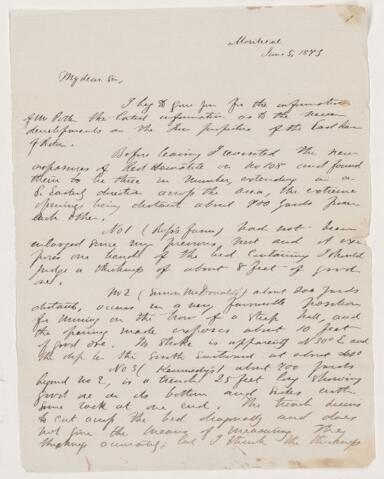 Montreal
June 5, 1873
My dear Sir,
I beg to give you for the information
of Mr the latest information as to the recent
developments on the Iron properties of the East River
of Pictou.
Before leaving I revisited the new
exposures of Red Hematite on No 108 and found
them to be three in number, extending in a
S. Easterly direction across the area, the extreme
openings being distant about 400 yards from
each other.
No 1 ( farm) had not been
enlarged since my previous visit and it ex-
poses one bench of the bed containing I should
judge a thickness of about 8 feet of good
ore.
No 2 ( McDonald's) about 200 yards
distant, occurs in a very favourable position
for mining on the brow of a steep hill, and
the opening made exposes about 10 feet
of good ore. Its strike is apparently N 30° E and
the dip to the South Eastward at about
No 3 (Kennedy's) about 200 yards
beyond no 2, is a trench 25 feet long showing
good ore in its bottom and sides with
some rock at one end. The trench seems
to cut across the bed diagonally and does
not give the means of measuring the
thickness accurately; but I think the thickness